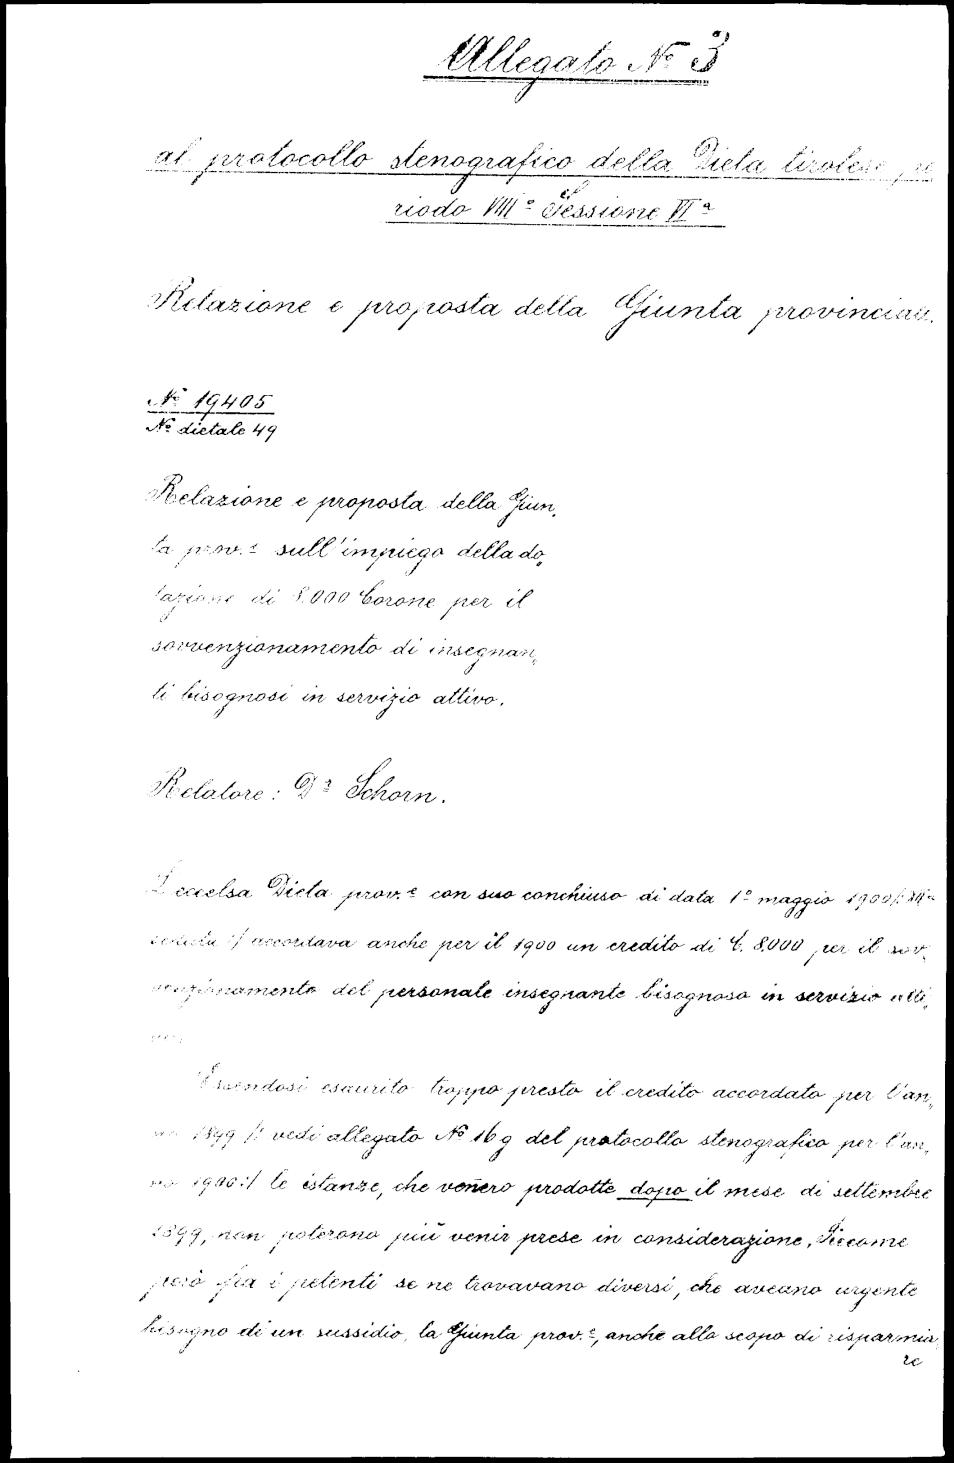 Allegato № 3
al protocollo stenografico della Dieta tirolese, pe
riodo VIIIº Sessione VIª
Relazione e proposta della Giunta provinciale.
№ 19405
№ dietale 49
Relazione e proposta della Giun,
ta prov.ᵉ sull'impiego della do,
tazione di 8.000 Corone per il
sovvenzionamento di insegnan,
ti bisognosi in servizio attivo.
Relatore: Dʳ Schorn.
L'eccelsa Dieta prov.ᵉ con suo conchiuso di data 1º maggio 1900
seduta :/ accordava anche per il 1900 un credito di C. 8.000 per il sov,
venzionamento del personale insegnante bisognoso in servizio atti,
vo.
Essendosi esaurito troppo presto il credito accordato per l'an,
no 1899 /: vedi allegato № 16 g del protocollo stenografico per l'an,
no 1900:/ le istanze, che veñero prodotte dopo il mese di settembre
1899, non poterono più venir prese in considerazione. Siccome
però fra i petenti se ne trovavano diversi, che aveano urgente
bisogno di un sussidio, la Giunta prov.ᵉ, anche allo scopo di risparmia
re